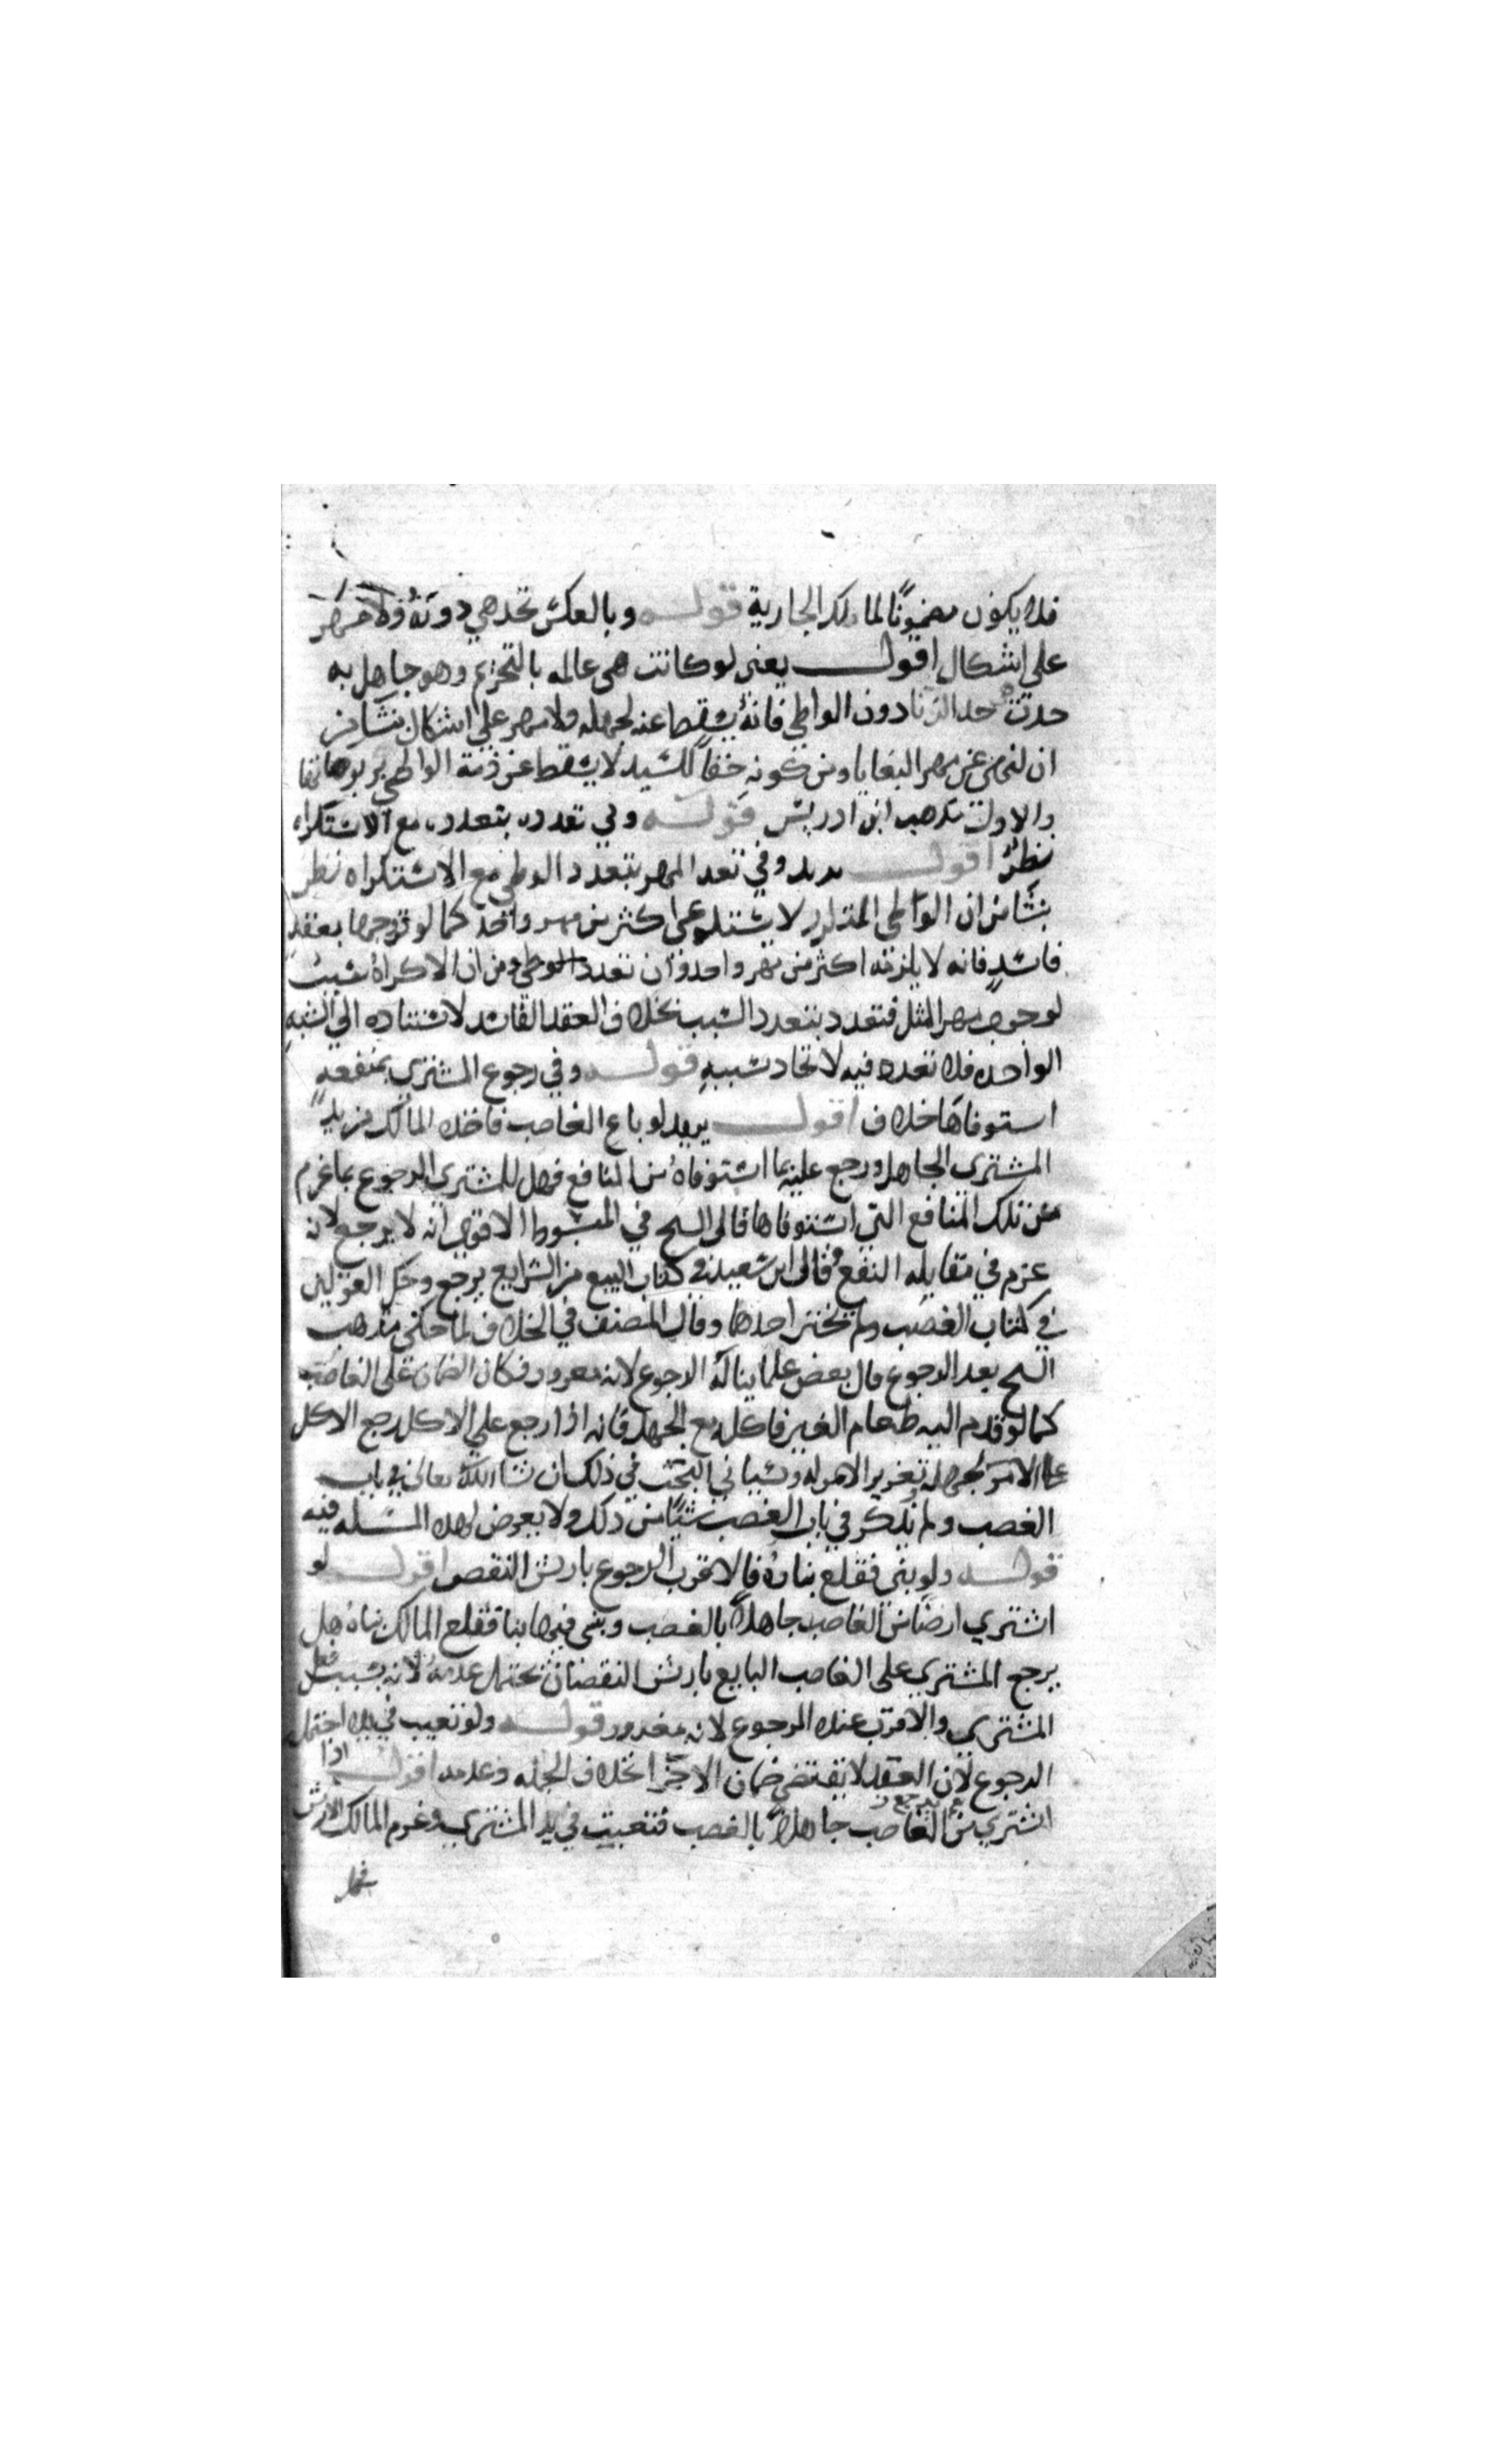 فلا يكون مضمونا لمالك الجارية قوله وبالعكس تحد هي دونه ولا مهر
على اشكال اقول يعني لو كانت هي عالمه بالتحريم وهو جاهل به
حدت حد الزنا دون الواطي فانه يسقط عنه لجهله ولا مهر على اشكال ينشا من
ان لنهي عن مهر البغايا ومن كونه حقا للسيد لا يسقط عن ذمة الواطي
والاول مذهب ابن ادريس قوله وفي تعدده بتعدده مع الاستكراه
نظر اقول يريد وفي تعدد المهر بتعدد الوطي مع الاستكراه نظر
ينشا من ان الواطي لا اكثر من مهر واحد كما لو تزوجها بعقد
فاسد فانه لا يلزمه اكثر من مهر واحد وان تعدد الوطي ومن ان الاكراه سبب
لوجوب مهر المثل فتعدد بتعدد السبب بخلاف العقد الفاسد لاستناده الى الشبه
الواحده فلا تعدد فيه لاتحاد سببه قوله وفي رجوع المشتري بمنفعه
استوفاها خلاف اقول يريد لو باع الغاصب فاخذه المالك من يد
المشتري الجاهل ورجع عليه بما استوفاه من المنافع فهل للمشتري الرجوع بما غرم
عن تلك المنافع التي استوفاها قال الشيخ في المبسوط الاقوى انه لا يرجع لانه
غرم في مقابله النفع وقال ابن سعيد في كتاب البيع من الشرايع يرجع وحكى القولين
في كتاب الغصب ولم يختر احدهما وقال المصنف في الخلاف لما حكى مذهب
الشيخ بعد الرجوع قال بعض علماينا له الرجوع لانه مغرور فكان الضمان على الغاصب
كما لو قدم اليه طعام الغير فاكله مع الجهل فانه اذا رجع على الاكل رجع الاكل
على الامر لجهله وتغرير الامر له وسياتي البحث في ذلك ان شا الله تعالى في باب
الغصب ولم يذكر في باب الغصب شيا من ذلك ولا تعرض لهذه المسله فيه
قوله ولو بنى فقلع بناوه فالاقرب الرجوع بارش النقص اقول لو
اشتري ارضا من الغاصب جاهلا بالغصب وبنى فيها بنا فقلع المالك بناه هل
يرجع المشتري على الغاصب البايع بارش النقصان يحتمل عدمه لانه بسبب فعل
المشتري والاقرب عنده الرجوع لانه مغرور قوله ولو تعيب في يده احتمل
الرجوع لان العقد لا يقتضي ضمان الاجزا بخلاف الجمله وعدمه اقول اذا
اشتري من الغاصب جاهلا بالغصب فتعيبت في يد المشتري وغرم المالك الارش
فهل